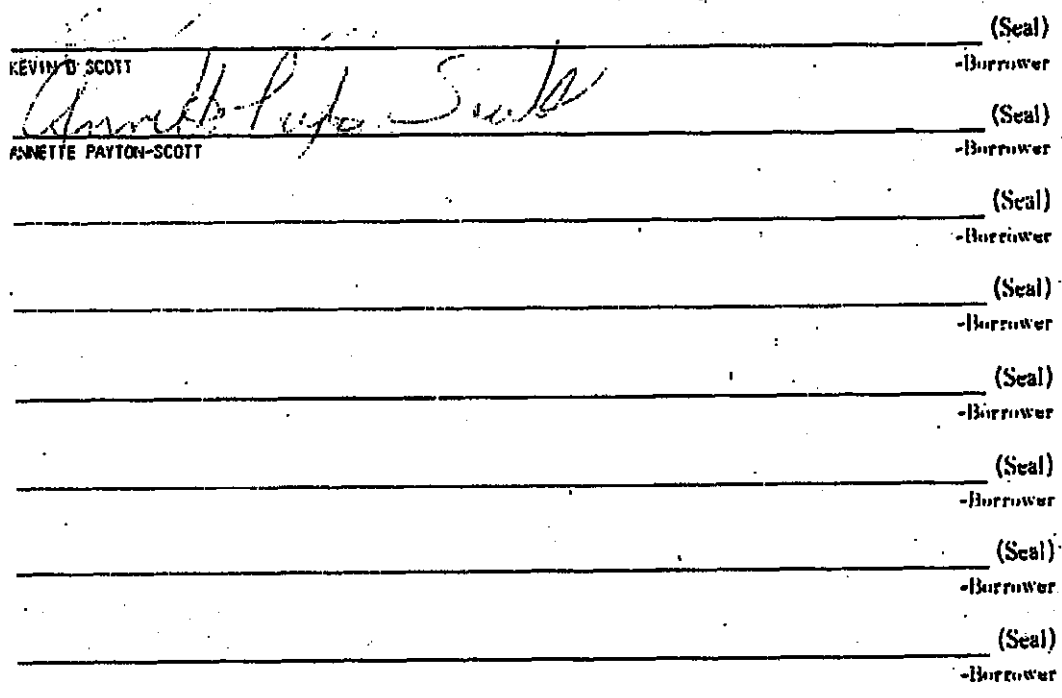 (Seal)
KEVIN D SCOTT -Borrower
Annette Payton-Scott (Seal)
ANNETTE PAYTON-SCOTT -Borrower
(Seal)
-Borrower
(Seal)
-Borrower
(Seal)
-Borrower
(Seal)
-Borrower
(Seal)
-Borrower
(Seal)
-Borrower